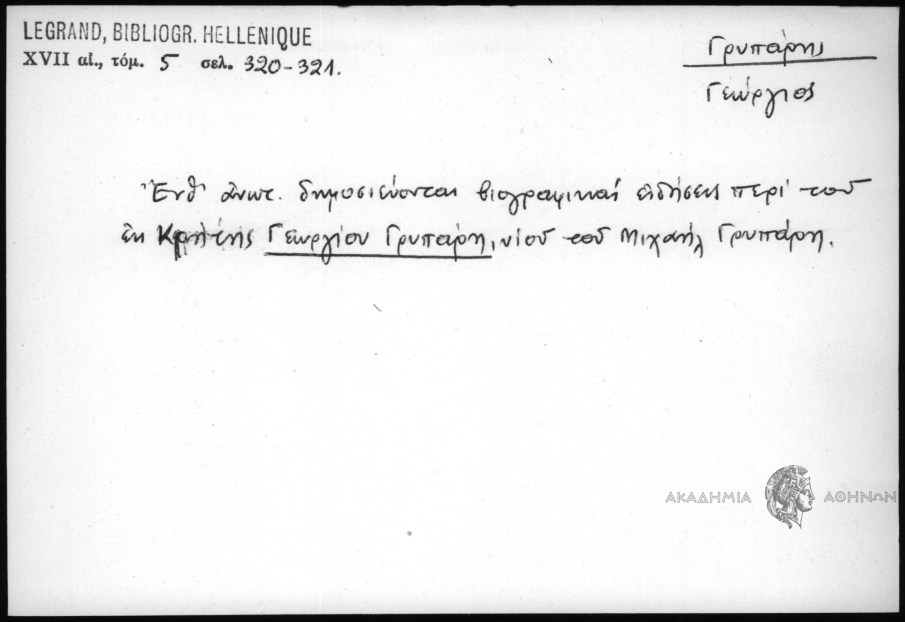 LEGRAND, BIBLIOGR. HELLENIQUE
XVII αἰ., τόμ. 5 σελ. 320-321.
Γρυπάρης
Γεώργιος
Ἔνθ' ἀνωτ. δημοσιεύονται βιογραφικαί εἰδήσεις περί τοῦ
ἐκ Κρήτης Γεωργίου Γρυπάρη, υἱοῦ τοῦ Μιχαήλ Γρυπάρη.
ΑΚΑΔΗΜΙΑ ΑΘΗΝΩΝ